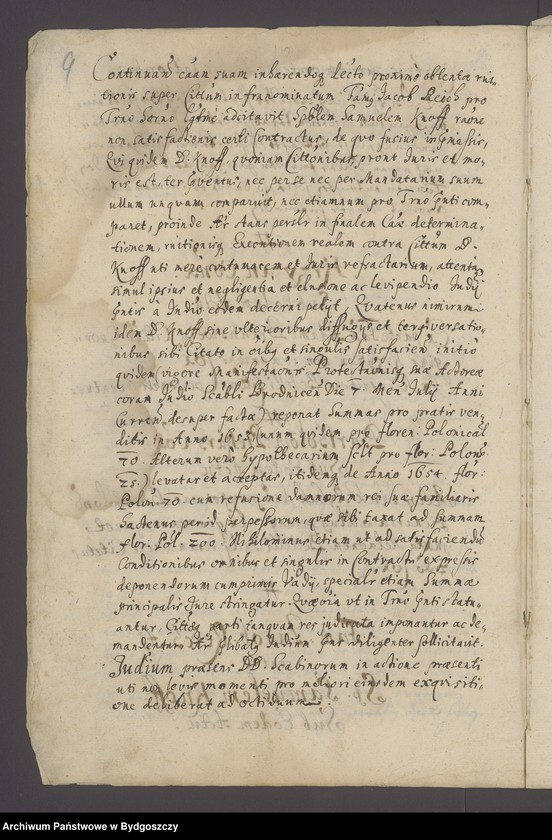 9
Continuan caan suam inhaerendoq Lecto proxime oblentae rui=
tionis super Cittum infranominatum Fam Jacob Reich pro
Trno horno Lgtme adcitavit Spblem Samuelem Knoff, raone
non satisfactionis certi Contractus, de quo fusius in Gnassis,
Qui quidem D. Knoff, quoniam Cittonibus, pront Juris et mo,
ris est, ter Conventus, nec per se nec per Mandatarium suum
ullum unquam comparuit, nec etiamnum pro Trno Gnti com,
paret, proinde Ar stans perslr in finalem Cae determina=
tionem, ruitionisq Executionem realem contra Cittum D.
Knoff uti mere contumacem et Juris refractarium, attenta
simul ipsius et negligentia et elusione ac levipendio Judij
Gntis à Judio eodem decerni petyt, Quatenus nimirum
idem D. Knoff sine ulterioribus diffugijs et tergiversatio,
nibus sibi Citato in oibq et singulis satisfaciens initio
quidem vigore Manifestaonis Protestaonisq suae Actoreae
coram Judio Scabli Brodnicen Die 7 Men Julij Anni
Curren desuper factae) reponat Summas pro pratis ven,
ditis in Anno 1655 unum quidem pro floren: Polonical
70. Alterum vero hypothecarium sclt pro flor: Polon
25.) levatas et acceptas, itidemq de Anno 1654 flor:
Polon: 70: cum refusione damnorum rei suae familiaris
hactenus persd perpessorum, quae sibi taxat ad summam
flor: Pol: 200. Nihilominus etiam ut ad satisfaciendum
Conditionibus omnibus et singulis in Contractu expressis
deponendorum cumprimis Vadij, specialr etiam Summae
principalis Jure stringatur. Quaeoria ut in Trno Gnti statu=
antur, Cittaeq parti tanquam res judicata imponantur ac de=
mandentur, Ar Glibatq Judium Gns diligenter sollicitavit.
Judium praesens DD: Scabinorum in actione praesenti
uti non levis momenti pro meliori eiusdem exquisiti,
one deliberat ad octiduum.
Archiwum Państwowe w Bydgoszczy